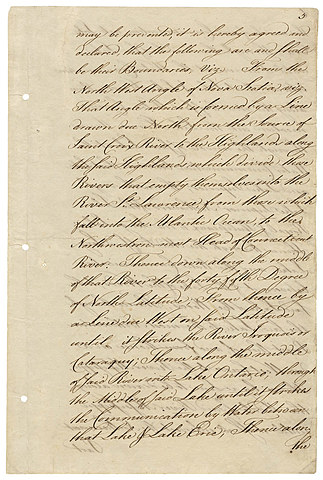 3
may be prevented, it is hereby agreed and
declared that the following are and shall
be their Boundaries, Viz. From the
North West Angle of Nova Scotia, viz.
That Angle which is formed by a Line
drawn due North from the Source of
Saint Croix River to the Highlands along
the said Highlands which divide those
Rivers that empty themselves into the
River St. Lawrence, from those which
fall into the Atlantic Ocean, to the
Northwestern-most Head of Connecticut
River: Thence down along the middle
of that River to the forty fifth Degree
of North Latitude; From thence by
a Line due West on said Latitude
until it strikes the River Iroquois or
Cataraquy; Thence along the middle
of said River into Lake Ontario; through
the Middle of said Lake until it strikes
the Communication by Water between
that Lake & Lake Erie; Thence along
the